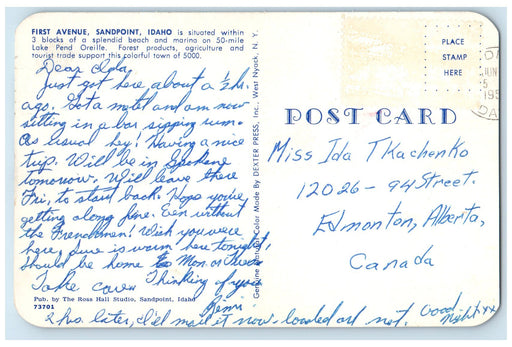 FIRST AVENUE, SANDPOINT, IDAHO is situated within
3 blocks of a splendid beach and marina on 50-mile
Lake Pend Oreille. Forest products, agriculture and
tourist trade support this colorful town of 5000.
Dear Ida,
Just got here about a ½ hr.
ago. Got a motel and am now
sitting in a bar, sipping rum.
As usual hey! Having a nice
trip. Will be in Spokane
tomorrow. Will leave there
Fri, to start back. Hope you're
getting along fine. Even without
the Frenchmen! Wish you were
here, sure is warm here tonight,
Should be home Mon. or Tues
Take care Thinking of you
2 hrs. later, I'll mail it now - loaded or not. Good
night xx
Pub. by The Ross Hall Studio, Sandpoint, Idaho
73701
Genuine Natural Color Made By DEXTER PRESS, Inc., West Nyack, N. Y.
PLACE
STAMP
HERE
JUN
5
POST CARD
Miss Ida Tkachenko
12026 - 94 Street.
Edmonton, Alberta,
Canada